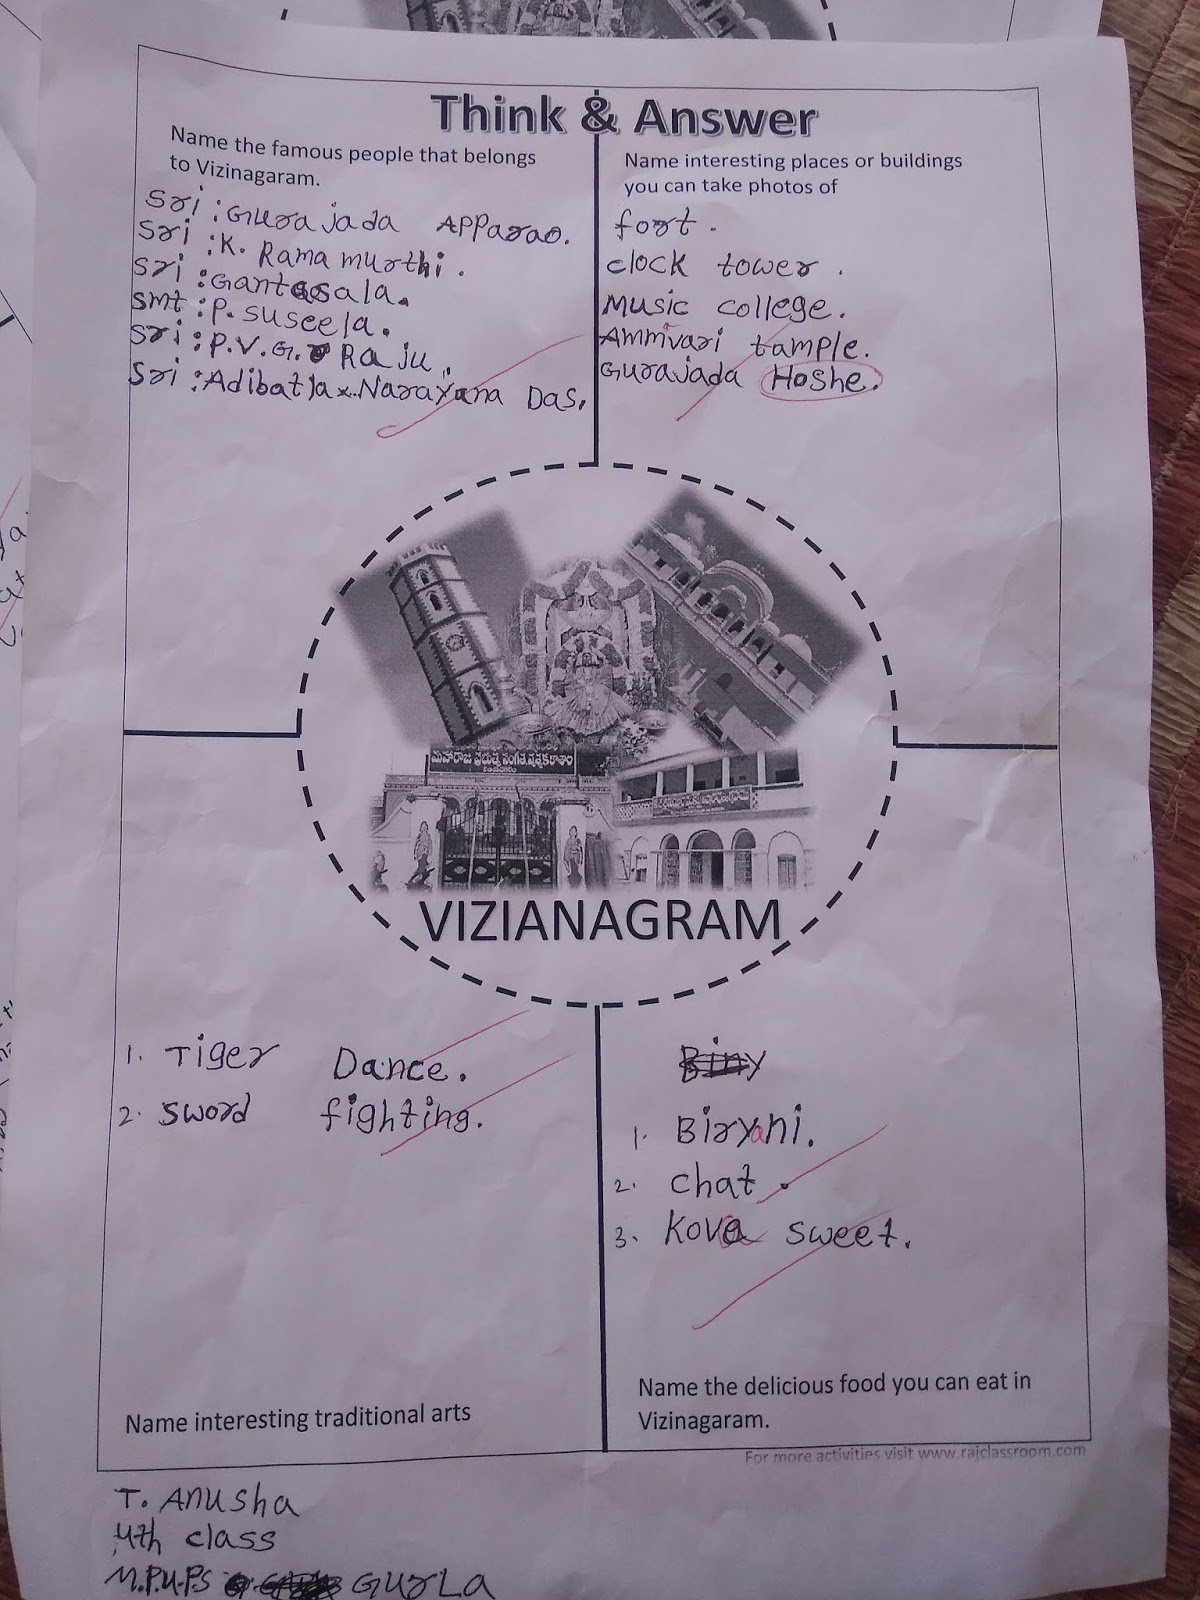 Think & Answer
Name the famous people that belongs
to Vizinagaram.
Sri : Gurajada Apparao.
Sri : K. Rama murthi.
Sri : Gantasala.
Smt : P. Suseela.
Sri : P.V.G. Raju.
Sri : Adibatla Narayana Das.
Name interesting places or buildings
you can take photos of
fort.
clock tower.
Music college.
Ammavari tample.
Gurajada Hoshe.
మహారాజ ప్రభుత్వ సంగీత, నృత్య కళాశాల
VIZIANAGRAM
1. Tiger Dance.
2. Sword fighting.
Name interesting traditional arts
1. Biryani.
2. chat.
3. Kova sweet.
Name the delicious food you can eat in
Vizinagaram.
For more activities visit www.rajclassroom.com
T. Anusha
4th class
M.P.U.P.S GURLA